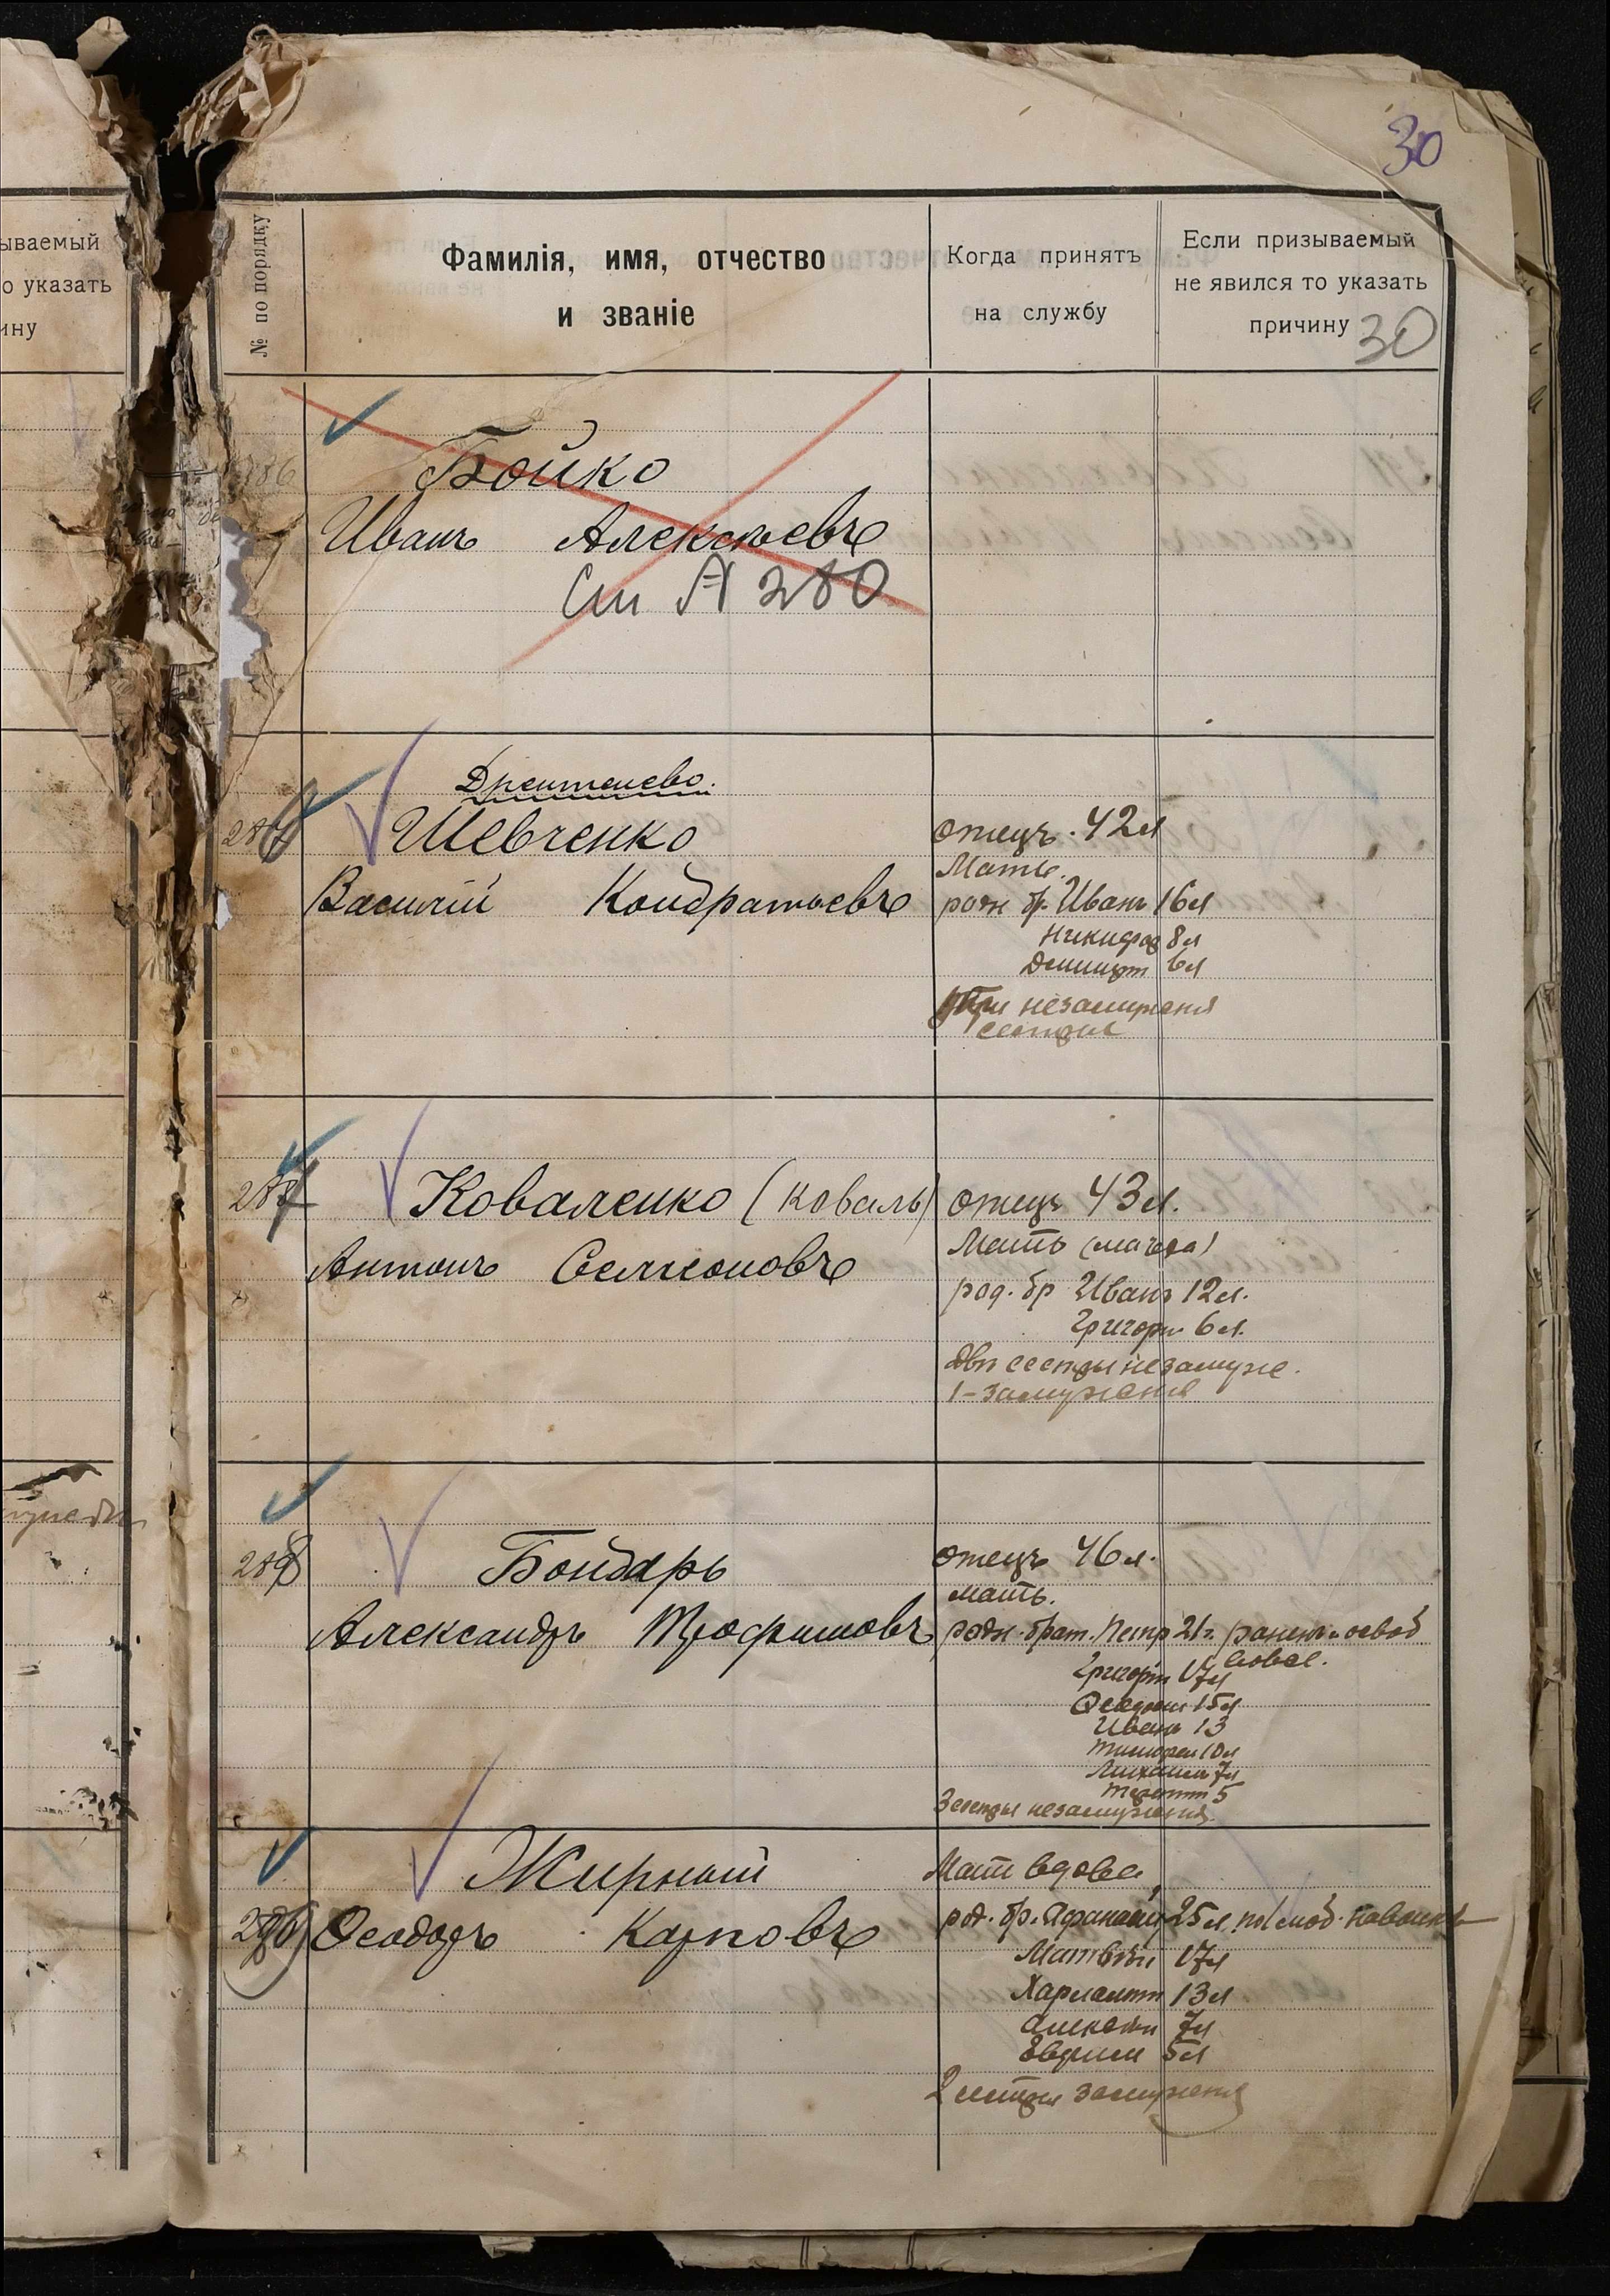 30
ываемый
о указать
ину
№ по порядку
Фамилія, имя, отчество
и званіе
Когда принятъ
на службу
Если призываемый
не явился то указать
причину
30
Бойко
Иванъ Алексѣевъ
См № 280
Дрентелево.
286 Шевченко
Василій Кондратьевъ
отецъ. 42 л
Мать.
родн бр. Иванъ 16 л
Никифор 8 л
6 л
Три незамужнія
сестры
287 Коваленко (Коваль)
Антонъ Семеоновъ
отецъ 43 л.
Мать (мачеха)
род. бр Иванъ 12 л.
Григори 6 л.
Двѣ сестры незамуже.
1 – замуженя
288 Бондарь
Александръ Трофимовъ
отецъ 46 л.
мать.
родн. брат. Петр 21 г. раненъ и освоб
Григорій 17 л
15 л
Иванъ 13
Тимофеи 10 л
Михаилъ 7 л
Терентт 5
3 сестры незамужнія.
Жирный
Ѳеодоръ Карповъ
Мать вдова,
род. бр. Афанасій 25 л. по моб.
Матвѣи 17 л
Харлампт 13 л
Алексѣи 7 л
Евдоким 5 л
2 сестры замуженя